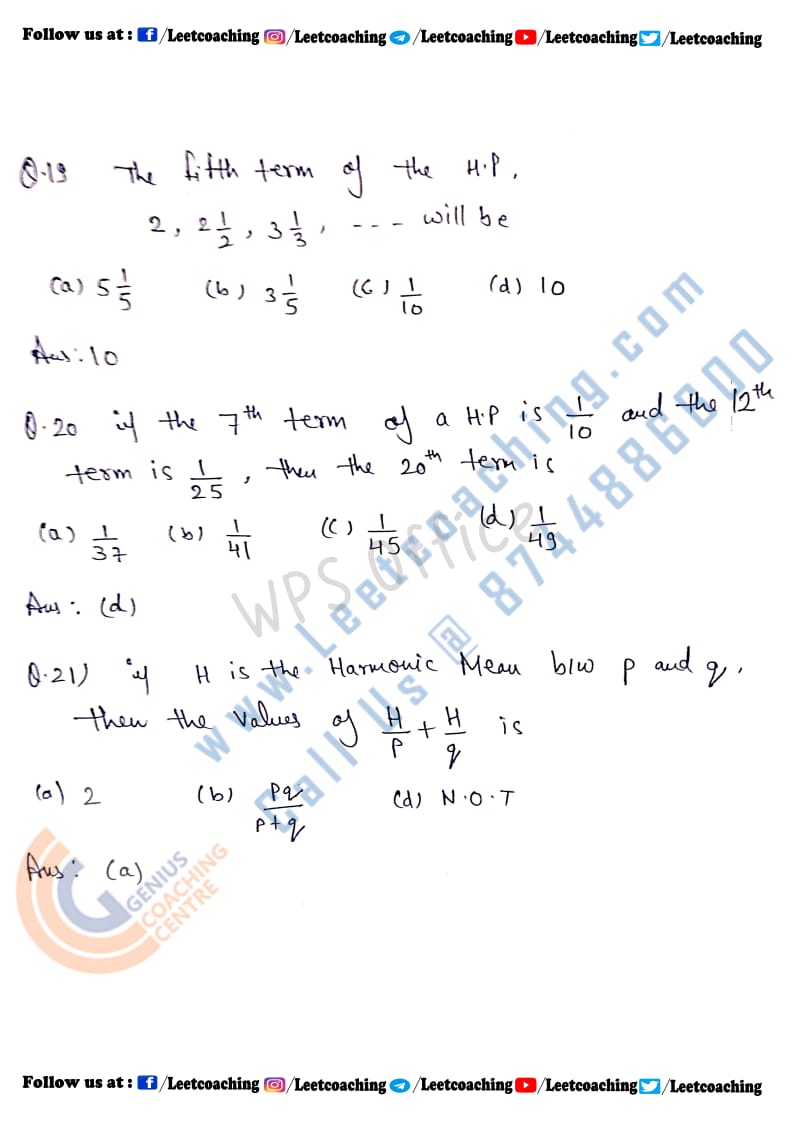 Follow us at : /Leetcoaching /Leetcoaching /Leetcoaching /Leetcoaching /Leetcoaching
Q.19 The fifth term of the H.P,
2, 2 1/2, 3 1/3, --- will be
(a) 5 1/5 (b) 3 1/5 (C) 1/10 (d) 10
Ans: 10
Q.20 if the 7th term of a H.P is 1/10 and the 12th
term is 1/25, then the 20th term is
(a) 1/37 (b) 1/41 (C) 1/45 (d) 1/49
Ans: (d)
Q.21) if H is the Harmonic Mean b/w p and q,
then the values of H/P + H/q is
(a) 2 (b) Pq/P+q (d) N.O.T
Ans: (a)
www.Leetcoaching.com
Call Us @ 8744886800
WPS Office
GENIUS
COACHING
CENTRE
Follow us at : /Leetcoaching /Leetcoaching /Leetcoaching /Leetcoaching /Leetcoaching